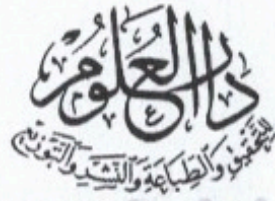 دَارُ العُلُومِ
لِلتَّحْقِيقِ وَالطِّبَاعَةِ وَالنَّشْرِ وَالتَّوْزِيعِ